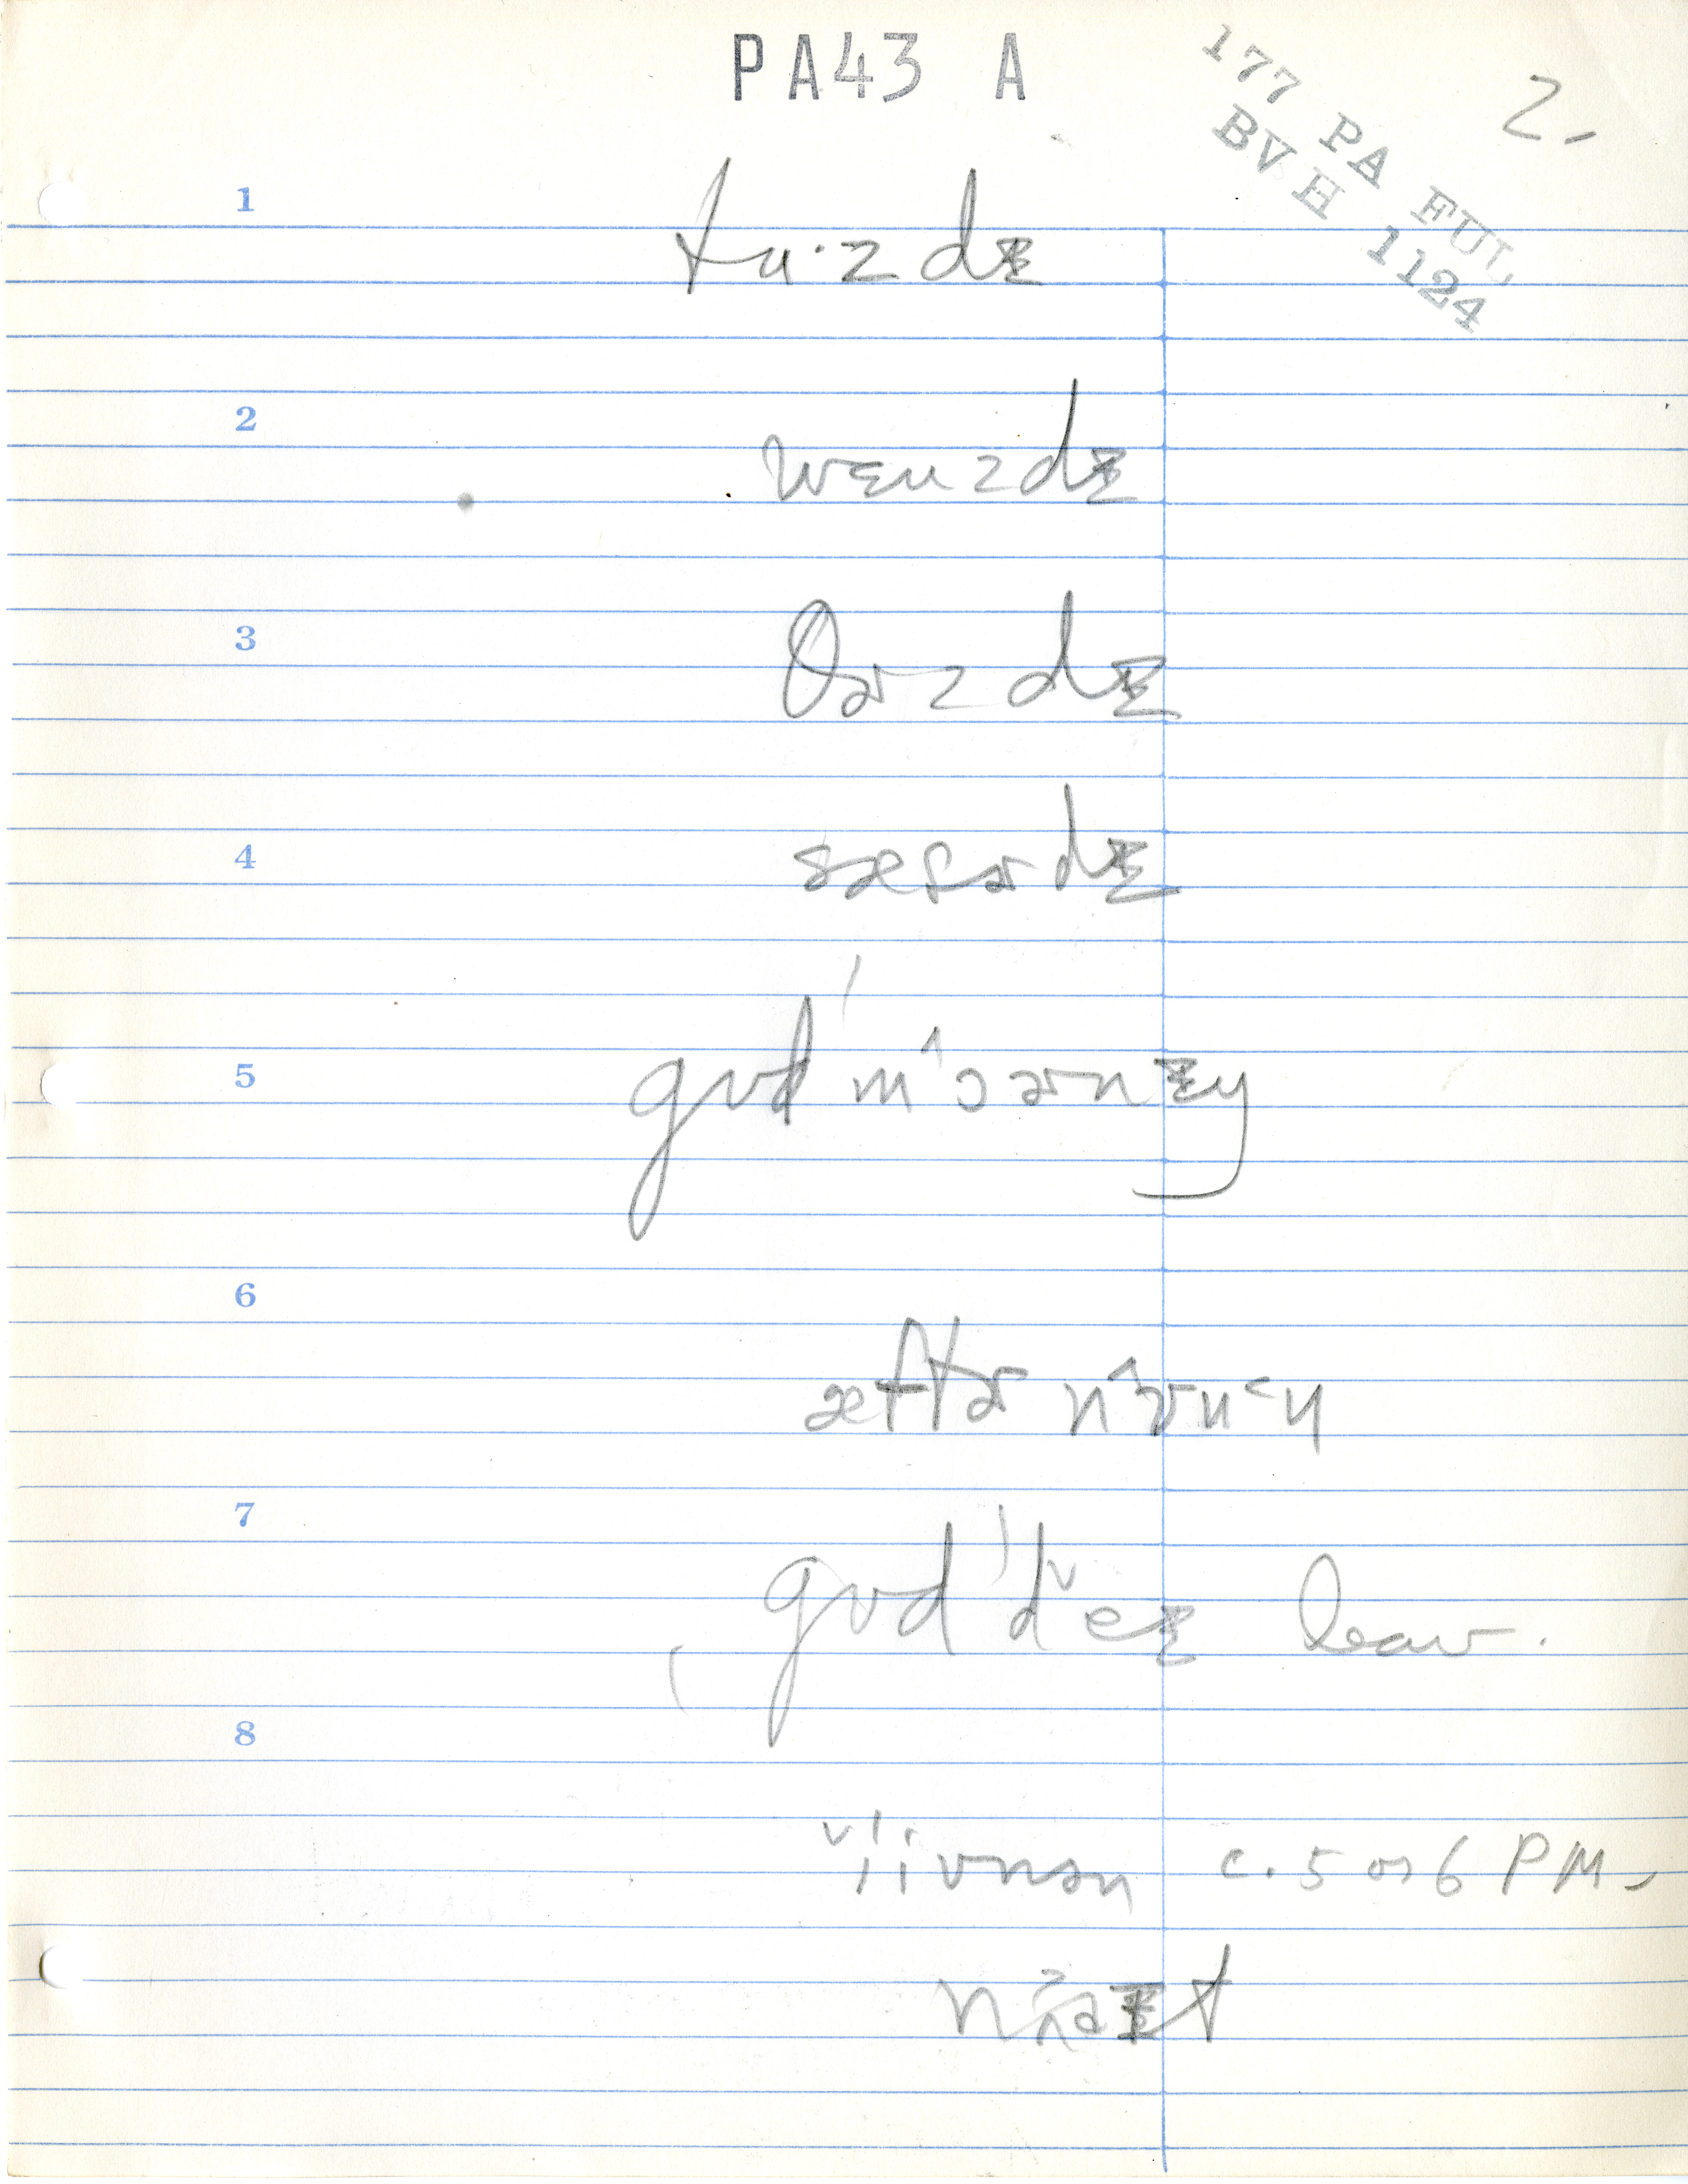 PA43 A
177 PA FUL
BVH 1124
2.
1
tu·zdɪ
2
wɛnzdɪ
3
θɚzdɪ
4
sæɾɚdɪ
5
gʊd 'mɔɚnɪŋ
6
æftɚ
7
gʊd 'deɪ leav.
8
c. 5 or 6 PM.